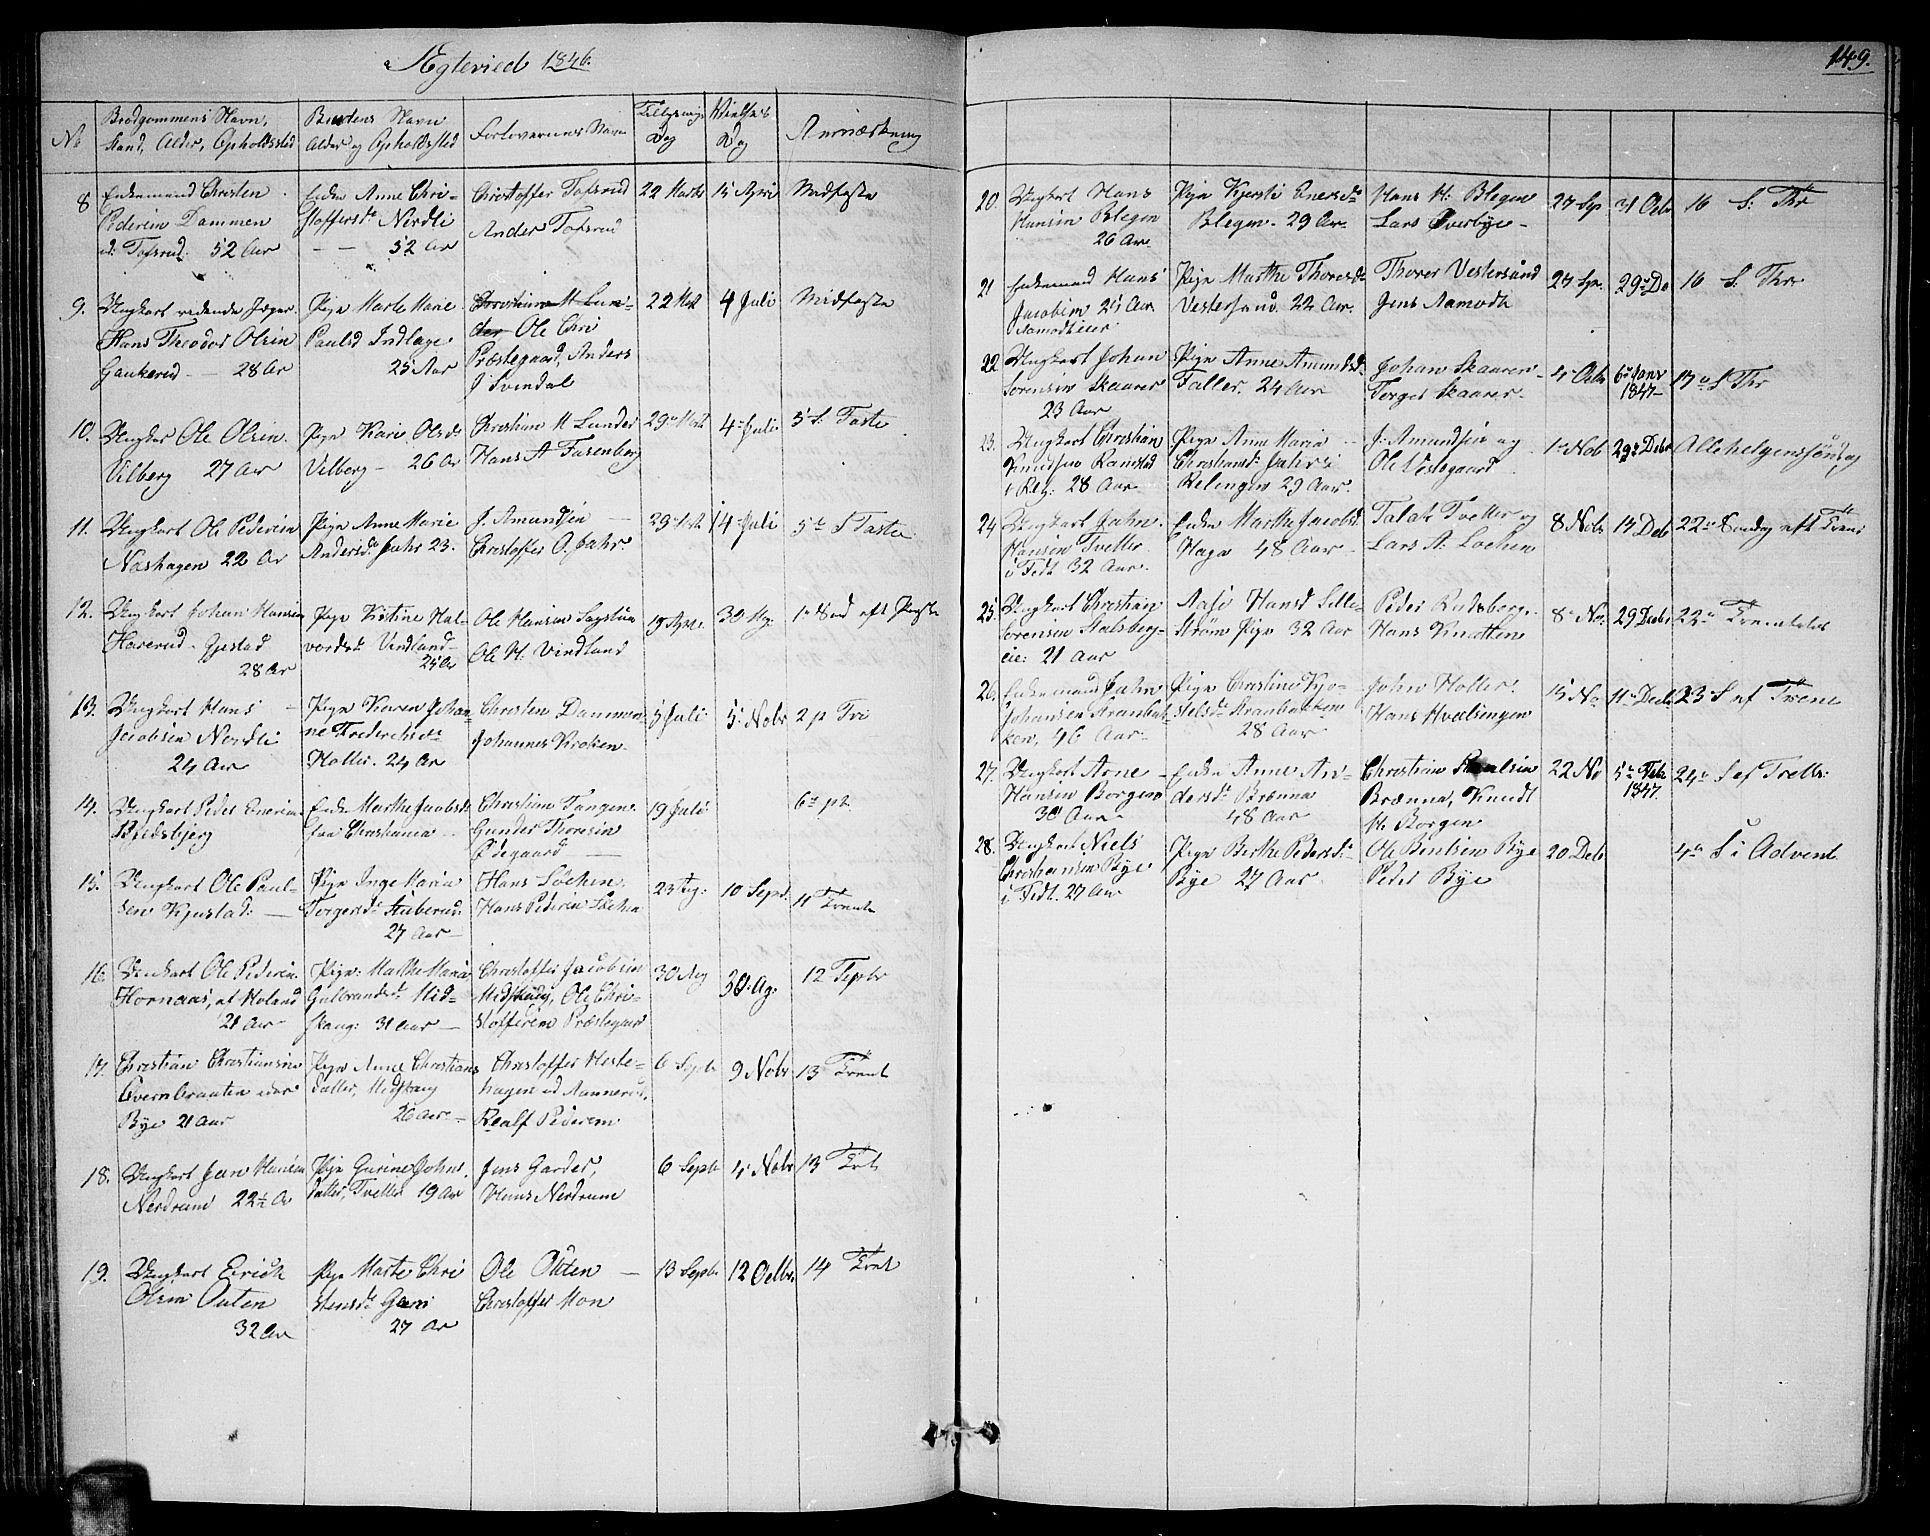 Ægteviede 1846.
149.
No
Brudgommens Navn,
Stand, Alder, Opholdssted
Brudens Navn
Alder og Opholdssted
Forlovernes Navn
Tillysnings
Dag
Vielses
Dag
Anmærkning
8
Enkemand Christen
Pedersen Dammen
Tofsrud. 52 Aar
Enke Anne Chri-
stoffersd. Nordli
52 Aar
Christoffer Tofsrud
Anders Tofsrud
22 Marts
15 April
Midfaste
9.
Ungkarl
Hans Theodor Olsen
Gaukerud — 28 Ar
Pige Marte Marie
Paulsd Indlage
25 Aar
Christian M Lun-
der Ole Chri
Præstegaard, Anders
J Svendal
22 Mts
4 Juli
Midfaste
10.
Ungkar Ole Olsen
Vilberg 27 Aar
Pige Kari Olsd.
Vilberg — 26 Ar
Christian M Lunder
Hans A Fasenberg
29 Mts
4 Juli
5 S. Faste
11.
Ungkarl Ole Pedersen
Nashagen 22 Ar
Pige Anne Marie
Andersd. Jahr 23.
J. Amundsen
Christoffer O. Jahr.
29 Mts
14 Juli
5te S Faste
12.
Ungkarl Johan Hansen
Haverud. Gjestad
28 Ar
Pige Kistine Hal-
vordsd. Vindland
25 Ar
Ole Hansen
Ole H. Vindland
19 Apr.
30
1 Sønd eft Paaske
13.
Ungkarl Hans
Jacobsen Nordli
24 Aar
Pige Karen Johan-
ne Frederiksd.
Holter. 24 Ar
Christen Dammen
Johannes Kroken
5 Juli
5 Nobr
2 p Tri
14.
Ungkarl Peder Enersen
Bredsbjerg
Enke Marthe Jacobsd.
fra Christiania
Christian Tangen
Gunder Thoresen
Ødegaard
19 Juli
6 p
15.
Ungkarl Ole Paul-
sen Kjustad
Pige Inge Maria
Torgersd. Auberud
27 Aar
Hans Løchen
Hans Pedersen Løchen
23 Aug:
10 Sept.
11 Trinit
16.
Ungkarl Ole Pedersen
Hornaas, af Høland
21 Aar
Pige: Marthe Maria
Gulbrandsd. Mid-
skaug: 31 Aar
Christoffer Jacobsen
Midskoug, Ole Chri-
stoffersen Præstegaard
30 Aug
30. Ag.
12
17.
Christian Christiansen
Qvernbraaten
Bye 21 Aar
Pige Anne Christians
datter, Midskaug
26 Aar
Christoffer Heste-
hagen
Realf Pedersen
6 Septb
9 Nobr
13 Trinit
18.
Ungkarl Jan Hansen
Nerdrum 22½ Ar
Pige Gurine Johns
datter, Tvetter 19 Ar
Jens Garder,
Hans Nerdrum
6 Septb
4 Nobr
13 Trt
19.
Ungkarl Erich
Olsen Outen
32 Ar
Pige Marte Chri
stensd.
27 Ar
Ole Outen
Christoffer Mon
13 Septb.
12 Octbr.
14 Trnt
20.
Ungkarl Hans
Hansen Blegen
26 Aar
Pige Kjersti Enersd.
Blegen. 29 Aar
Hans H: Blegen
Lars Øverbye
27 Sep
31 Octr
16 S: Tr
21
Enkemand Hans
Jacobsen 25 Aar
Aamodteier
Pige Marthe Thoresd.
Vestersund. 22 Aar.
Thorer Vestersund
Jens Aamodt
27 Spt.
29 Do
16 S. Tr
22
Ungkarl Johan
Sørensen Skaarer
23 Aar
Pige Anne Amundsd.
Faller. 24 Aar
Johan Skaarer
Torger Skaarer
4 Octr
6 Janr
1847
17 S Tr
23.
Ungkarl Christian
Knudsen Ramstad
i Rel: 28 Aar
Pige Anne Maria
Christiansd. Jahr i
Relingen 29 Aar.
J. Amundsen og
Ole Vestegaard
1 Nob
29 Debr
Allehelgenssøndag
24
Ungkarl John
Hansen Tvetter
i Fedt 32 Aar
Enke Marthe Jacobsd.
Haga 48 Aar
Talak Tvetter og
Lars A. Lochen
8 Nobr
13 Deb
22 Søndag eft Trin
25.
Ungkarl Christian
Sørensen Stalsberg-
eie: 21 Aar
Aase Hansd Lille-
strøm Pige 32 Aar
Peder Rudsberg
Hans Knatten
8 No:
29 Decbr
22
26.
Enkemand John
Johansen Aranbak-
ken, 46 Aar
Pige Christine Kjo-
stelsd. Aranbakken
28 Aar
John Holter
Hans Hvalsengen
15 No
11 Decbr
23 S ef Trine
27.
Ungkarl Arne
Hansen Borgen
30 Aar
Enke Anne An-
dersd. Brænna
48 Aar
Christian Paulsen
Brænna, Knudt
H. Borgen
22 No
5 Febr
1847.
24 S ef
28.
Ungkarl Niels
Christiansen Bye
i Fedt. 27 Aar
Pige Berthe Pedersd.
Bye 27 Aar
Ole Bentsen Bye
Peder Bye
20 Deb
4 S i Advent